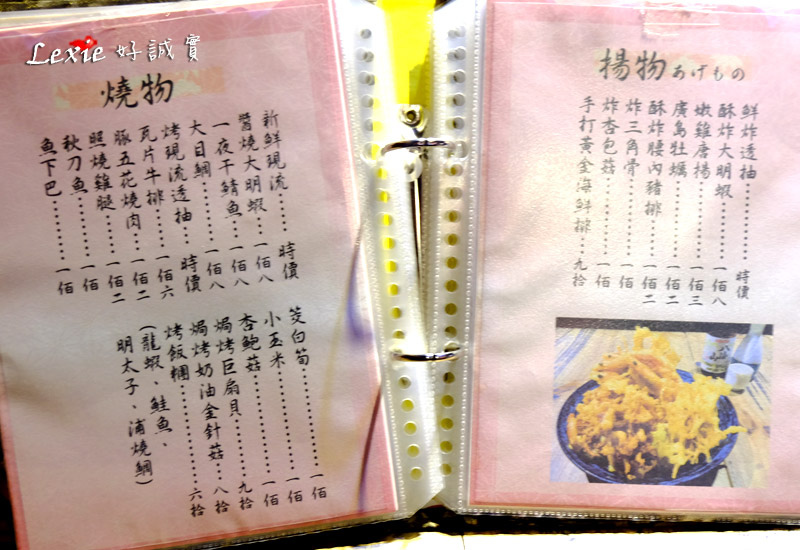 Lexie 好誠實
燒物
新鮮現流………時價
醬燒大明蝦………一佰八
一夜干鯖魚………一佰八
大目鯛………一佰八
烤現流透抽………時價
瓦片牛排………一佰六
豚五花燒肉………一佰二
照燒雞腿………一佰二
秋刀魚………一佰
魚下巴………一佰
茭白筍………一佰
小玉米………一佰
杏鮑菇………一佰
焗烤巨扇貝………九拾
焗烤奶油金針菇………八拾
烤飯糰………六拾
(龍蝦、鮭魚、
明太子、浦燒鯛)
揚物あげもの
鮮炸透抽………時價
酥炸大明蝦………一佰八
嫩雞唐揚………一佰三
廣島牡蠣………一佰二
酥炸腰內豬排………一佰二
炸三角骨………一佰
炸杏包菇………一佰
手打黃金海鮮排………九拾